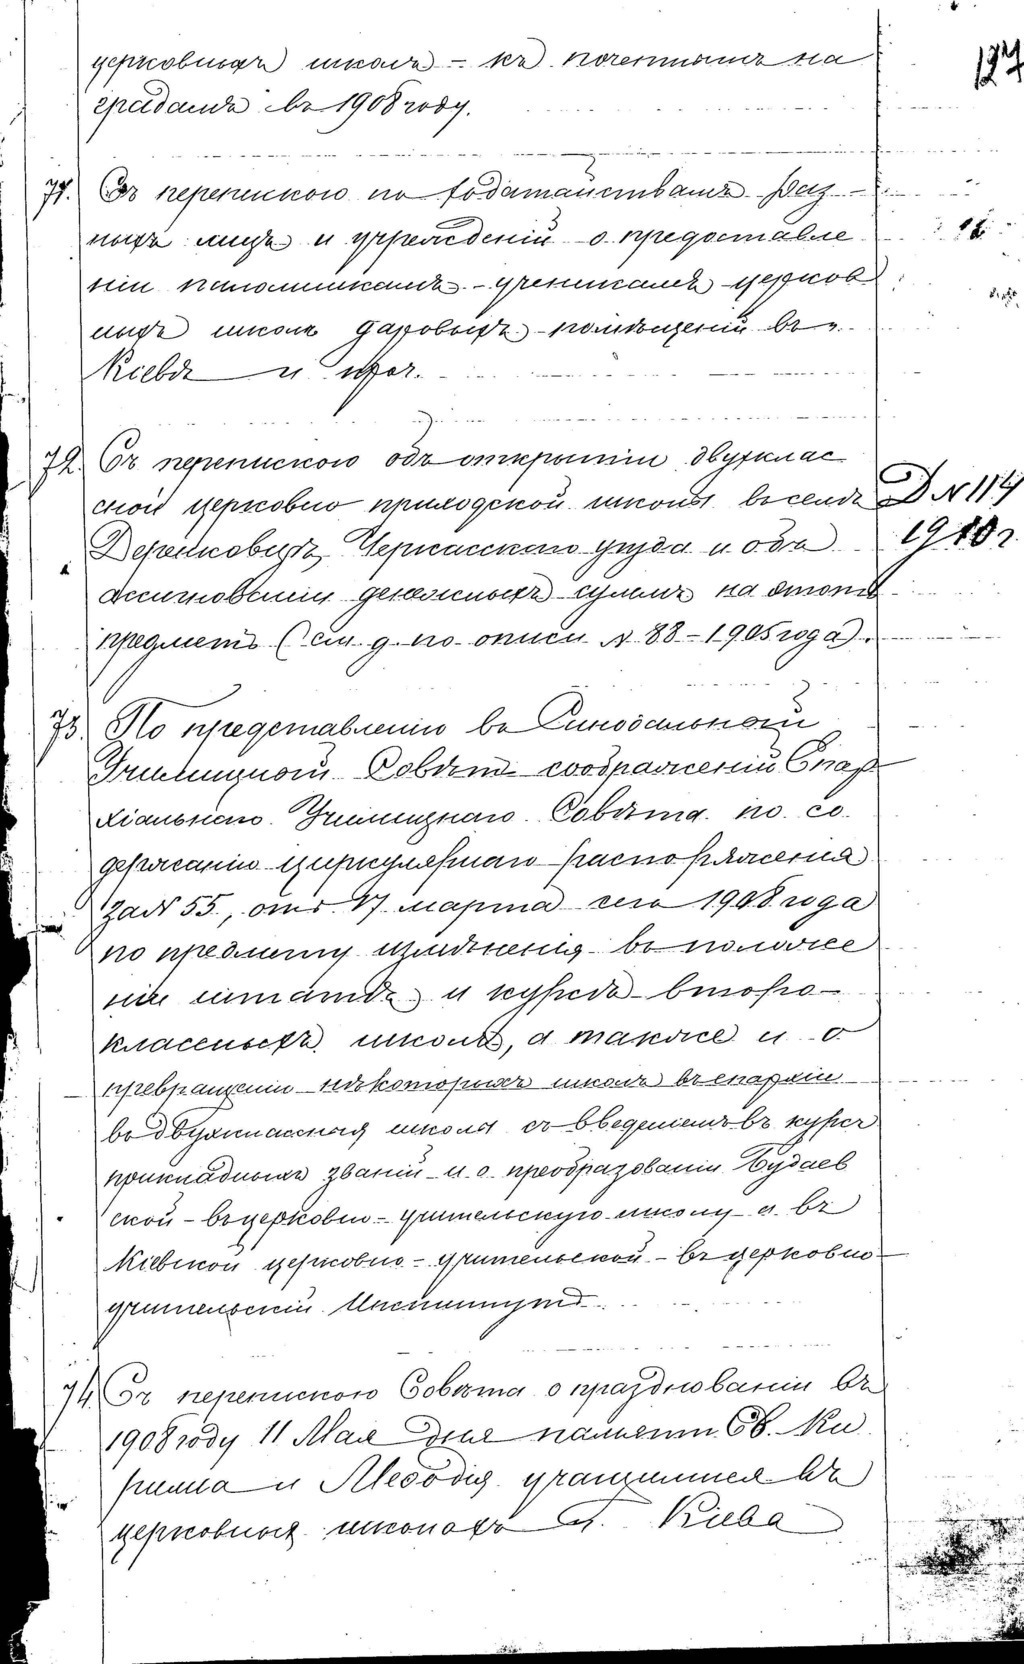 церковныхъ школъ – къ почетнымъ на
градамъ въ 1908 году.
127
71. Съ перепискою по ходатайствамъ раз–
ныхъ лицъ и учрежденій о предоставле
ніи паломникамъ – ученикамъ церков
ныхъ школъ даровыхъ помѣщеній въ
Кіевѣ и проч.
72. Съ перепискою объ открытіи двухклас
сной церковно приходской школы въ селѣ
Д № 114
Деренковцѣ, Черкасскаго уѣзда и объ
1910 г.
ассигнованіи денежныхъ суммъ на этотъ
предметъ (см. д. по описи № 88 – 1905 года).
73. По представленію въ Синодальной
Училищной Совѣтъ соображеній Епар
хіальнаго Училищнаго Совѣта по со
держанію циркулярнаго распоряженія
за № 55, отъ 17 марта сего 1908 года
по предмету измѣненія въ положе
ніи штатѣ и курсѣ второ–
классныхъ школъ, а также и о
превращеніи нѣкоторыхъ школъ въ епархіи
въ двухклассная школы съ введеніемъ въ курсъ
прикладныхъ званій и о преобразованіи Будаев
ской – въ церковно – учительскую школу а въ
Кіевской церковно – учительской – въ церковно–
учительскій Институтъ.
74. Съ перепискою Совѣта о празднованіи въ
1908 году 11 Мая дня памяти Св. Ки
рилла и Меѳодія учащимися въ
церковныхъ школахъ г. Кіева